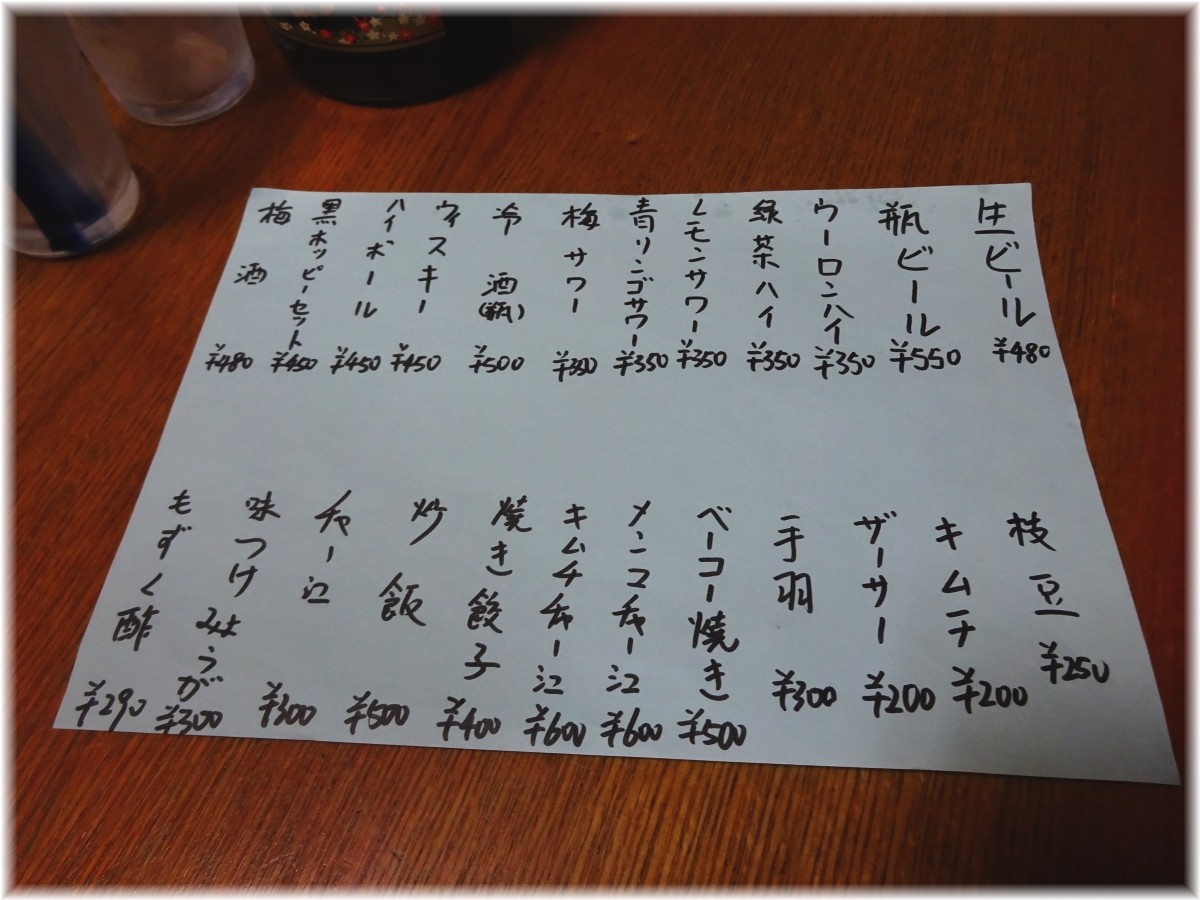 生ビール ¥480
瓶ビール ¥550
ウーロンハイ ¥350
緑茶ハイ ¥350
レモンサワー ¥350
青リンゴサワー ¥350
梅サワー ¥350
冷酒(瓶) ¥500
ウィスキー ¥450
ハイボール ¥450
黒ホッピーセット ¥450
梅酒 ¥480
枝豆 ¥250
キムチ ¥200
ザーサー ¥200
手羽 ¥300
ベーコー焼き ¥500
メンマチャー江 ¥600
キムチチャー江 ¥600
焼き餃子 ¥400
炒飯 ¥500
チャー江 ¥300
味つけみょうが ¥300
もずく酢 ¥290